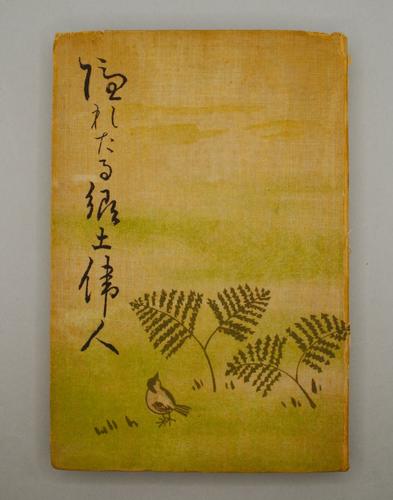 隠れたる郷土偉人